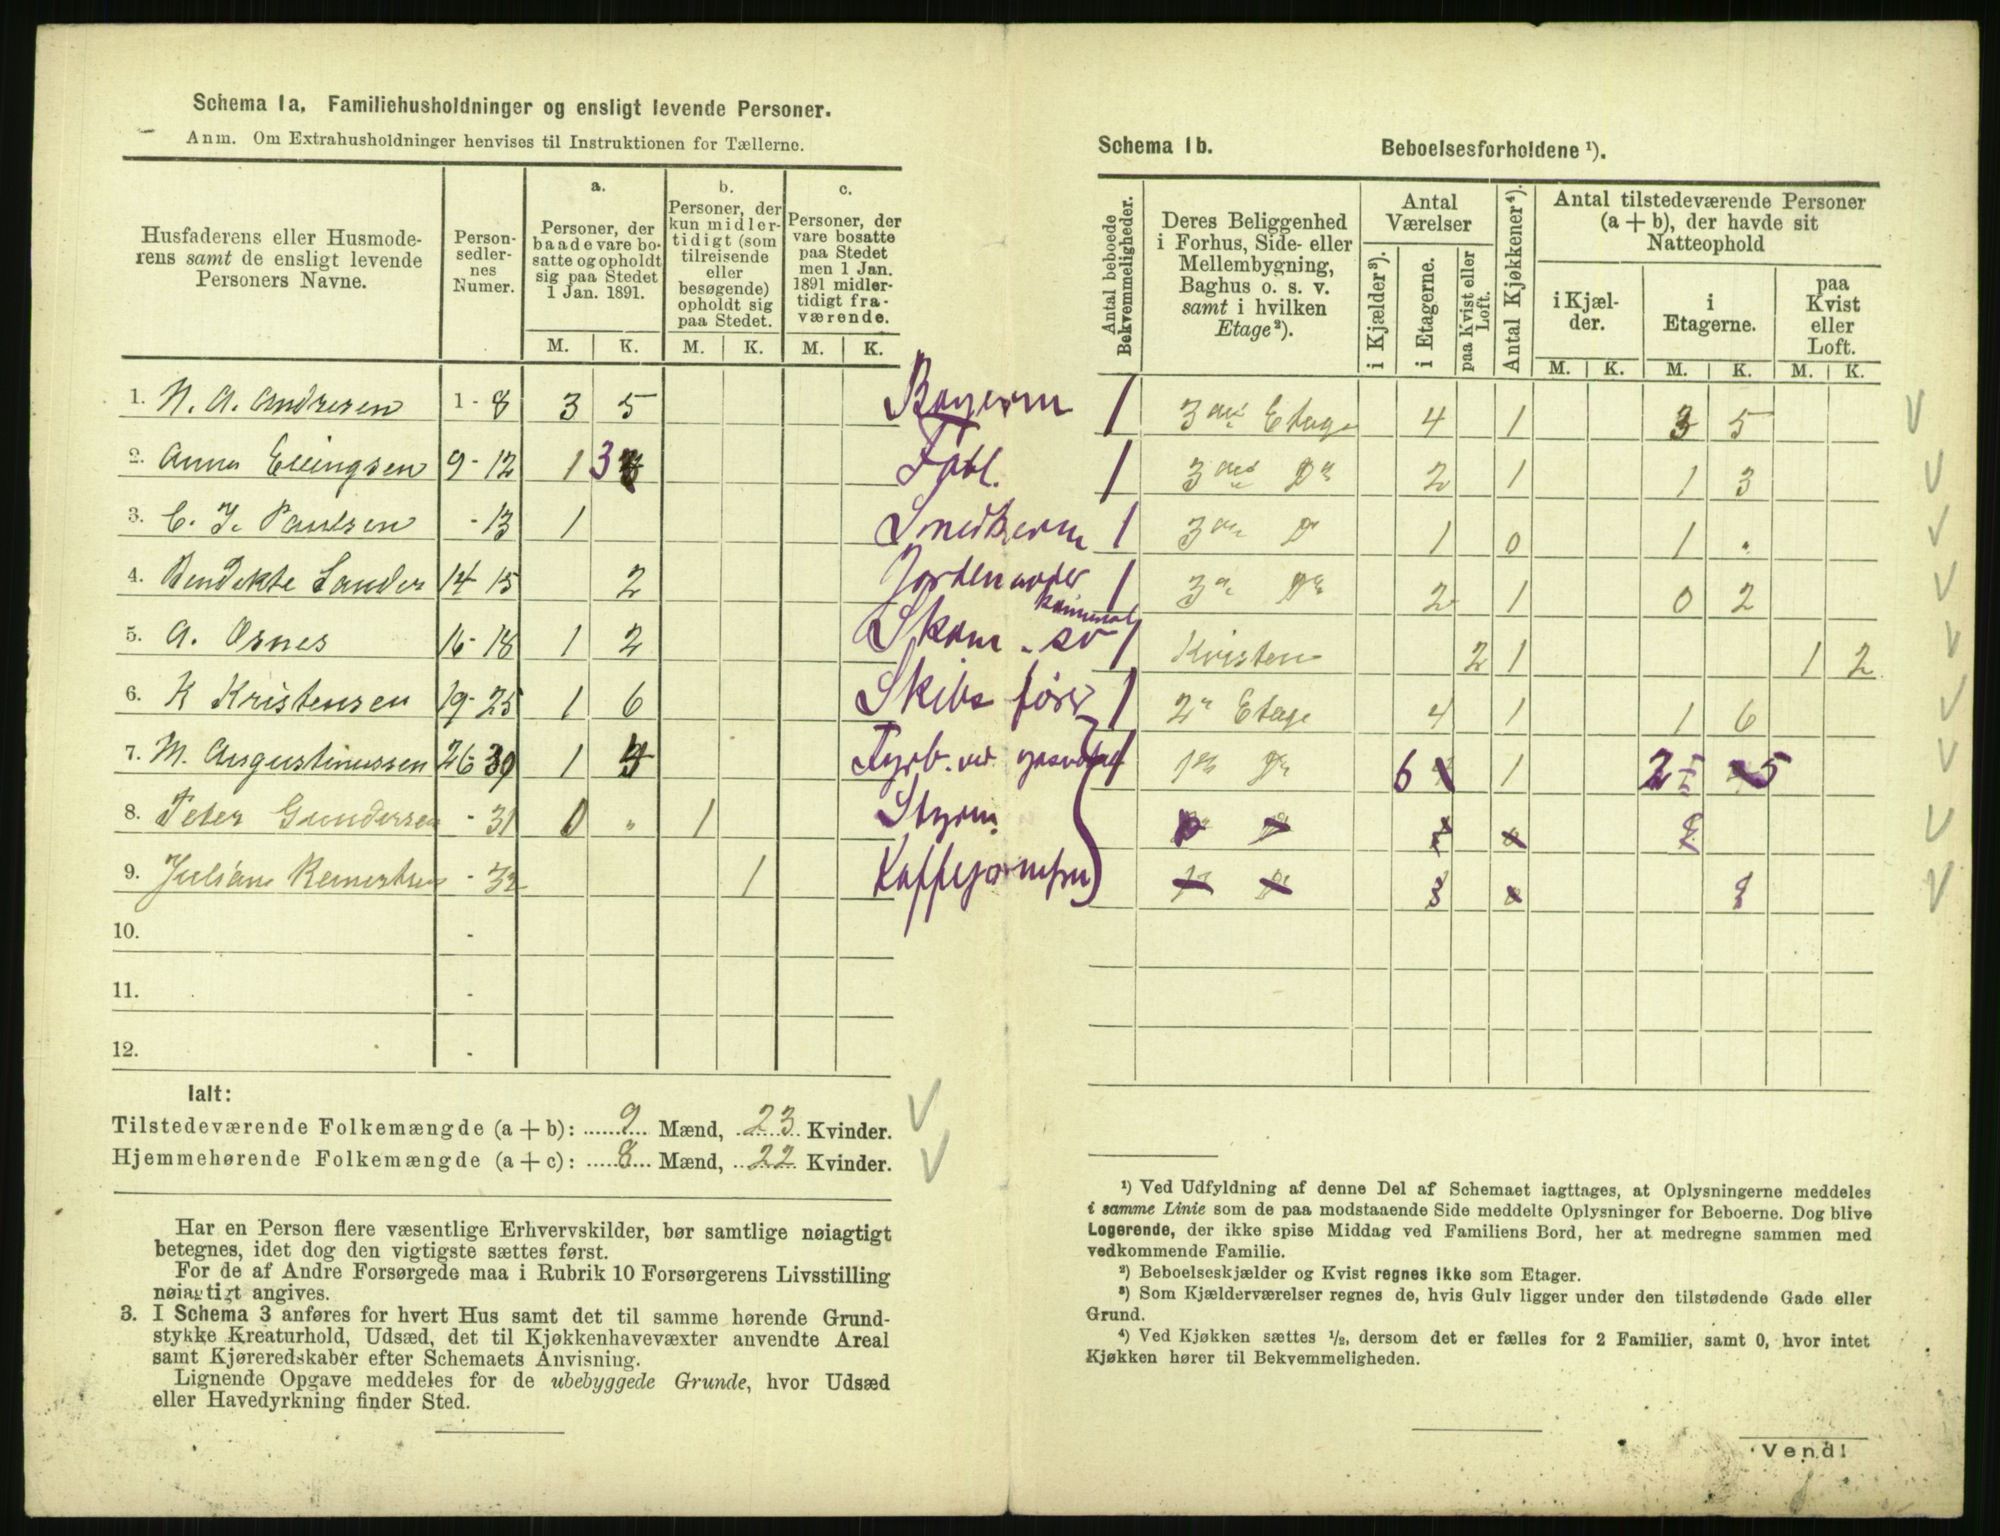 Schema 1a. Familiehusholdninger og ensligt levende Personer.
Anm. Om Extrahusholdninger henvises til Instruktionen for Tællerne.
Husfaderens eller Husmode-
rens samt de ensligt levende
Personers Navne.
Person-
sedler-
nes
Numer.
a.
Personer, der
baade vare bo-
satte og opholdt
sig paa Stedet
1 Jan. 1891.
b.
Personer, der
kun midler-
tidigt (som
tilreisende
eller
besøgende)
opholdt sig
paa Stedet.
c.
Personer, der
vare bosatte
paa Stedet
men 1 Jan.
1891 midler-
tidigt fra-
værende.
M. K. M. K. M. K.
1. N. A. Andresen 1 - 8 3 5
2. Anna Ellingsen 9 - 12 1 3
3. C. J. Paulsen - 13 1
4. Bendikte Sander 14 - 15 2
5. A. Osnes 16 - 18 1 2
6. K Kristensen 19 - 25 1 6
7. M. Augustinussen 26 - 30 1 4
8. Peter Gundersen - 31 0 " 1
9. - 32 1
10. -
11. -
12. -
Smedkerm
Skibsfører
Styrm.
Ialt:
Tilstedeværende Folkemængde (a + b): 9 Mænd, 23 Kvinder.
Hjemmehørende Folkemængde (a + c): 8 Mænd, 22 Kvinder.
Har en Person flere væsentlige Erhvervskilder, bør samtlige nøiagtigt
betegnes, idet dog den vigtigste sættes først.
For de af Andre Forsørgede maa i Rubrik 10 Forsørgerens Livsstilling
nøiagtigt angives.
3. I Schema 3 anføres for hvert Hus samt det til samme hørende Grund-
stykke Kreaturhold, Udsæd, det til Kjøkkenhavevæxter anvendte Areal
samt Kjøreredskaber efter Schemaets Anvisning.
Lignende Opgave meddeles for de ubebyggede Grunde, hvor Udsæd
eller Havedyrkning finder Sted.
Schema 1b. Beboelsesforholdene ¹).
Antal beboede
Bekvemmeligheder.
Deres Beliggenhed
i Forhus, Side- eller
Mellembygning,
Baghus o. s. v.
samt i hvilken
Etage²).
Antal
Værelser
i Kjælder³).
i Etagerne.
paa Kvist eller
Loft.
Antal Kjøkkener⁴).
Antal tilstedeværende Personer
(a + b), der havde sit
Natteophold
i Kjæl-
der.
i
Etagerne.
paa
Kvist
eller
Loft.
M. K. M. K. M. K.
1 3die Etage 4 1 3 5
1 3die Do 2 1 1 3
1 3die Do 1 0 1 "
1 3e Do 2 1 0 2
1 Kvisten 2 1 1 2
1 2n Etage 4 1 1 6
1 1ste Do 6 1 2 5
¹) Ved Udfyldning af denne Del af Schemaet iagttages, at Oplysningerne meddeles
i samme Linie som de paa modstaaende Side meddelte Oplysninger for Beboerne. Dog blive
Logerende, der ikke spise Middag ved Familiens Bord, her at medregne sammen med
vedkommende Familie.
²) Beboelseskjælder og Kvist regnes ikke som Etager.
³) Som Kjælderværelser regnes de, hvis Gulv ligger under den tilstødende Gade eller
Grund.
⁴) Ved Kjøkken sættes ½, dersom det er fælles for 2 Familier, samt 0, hvor intet
Kjøkken hører til Bekvemmeligheden.
Vend!